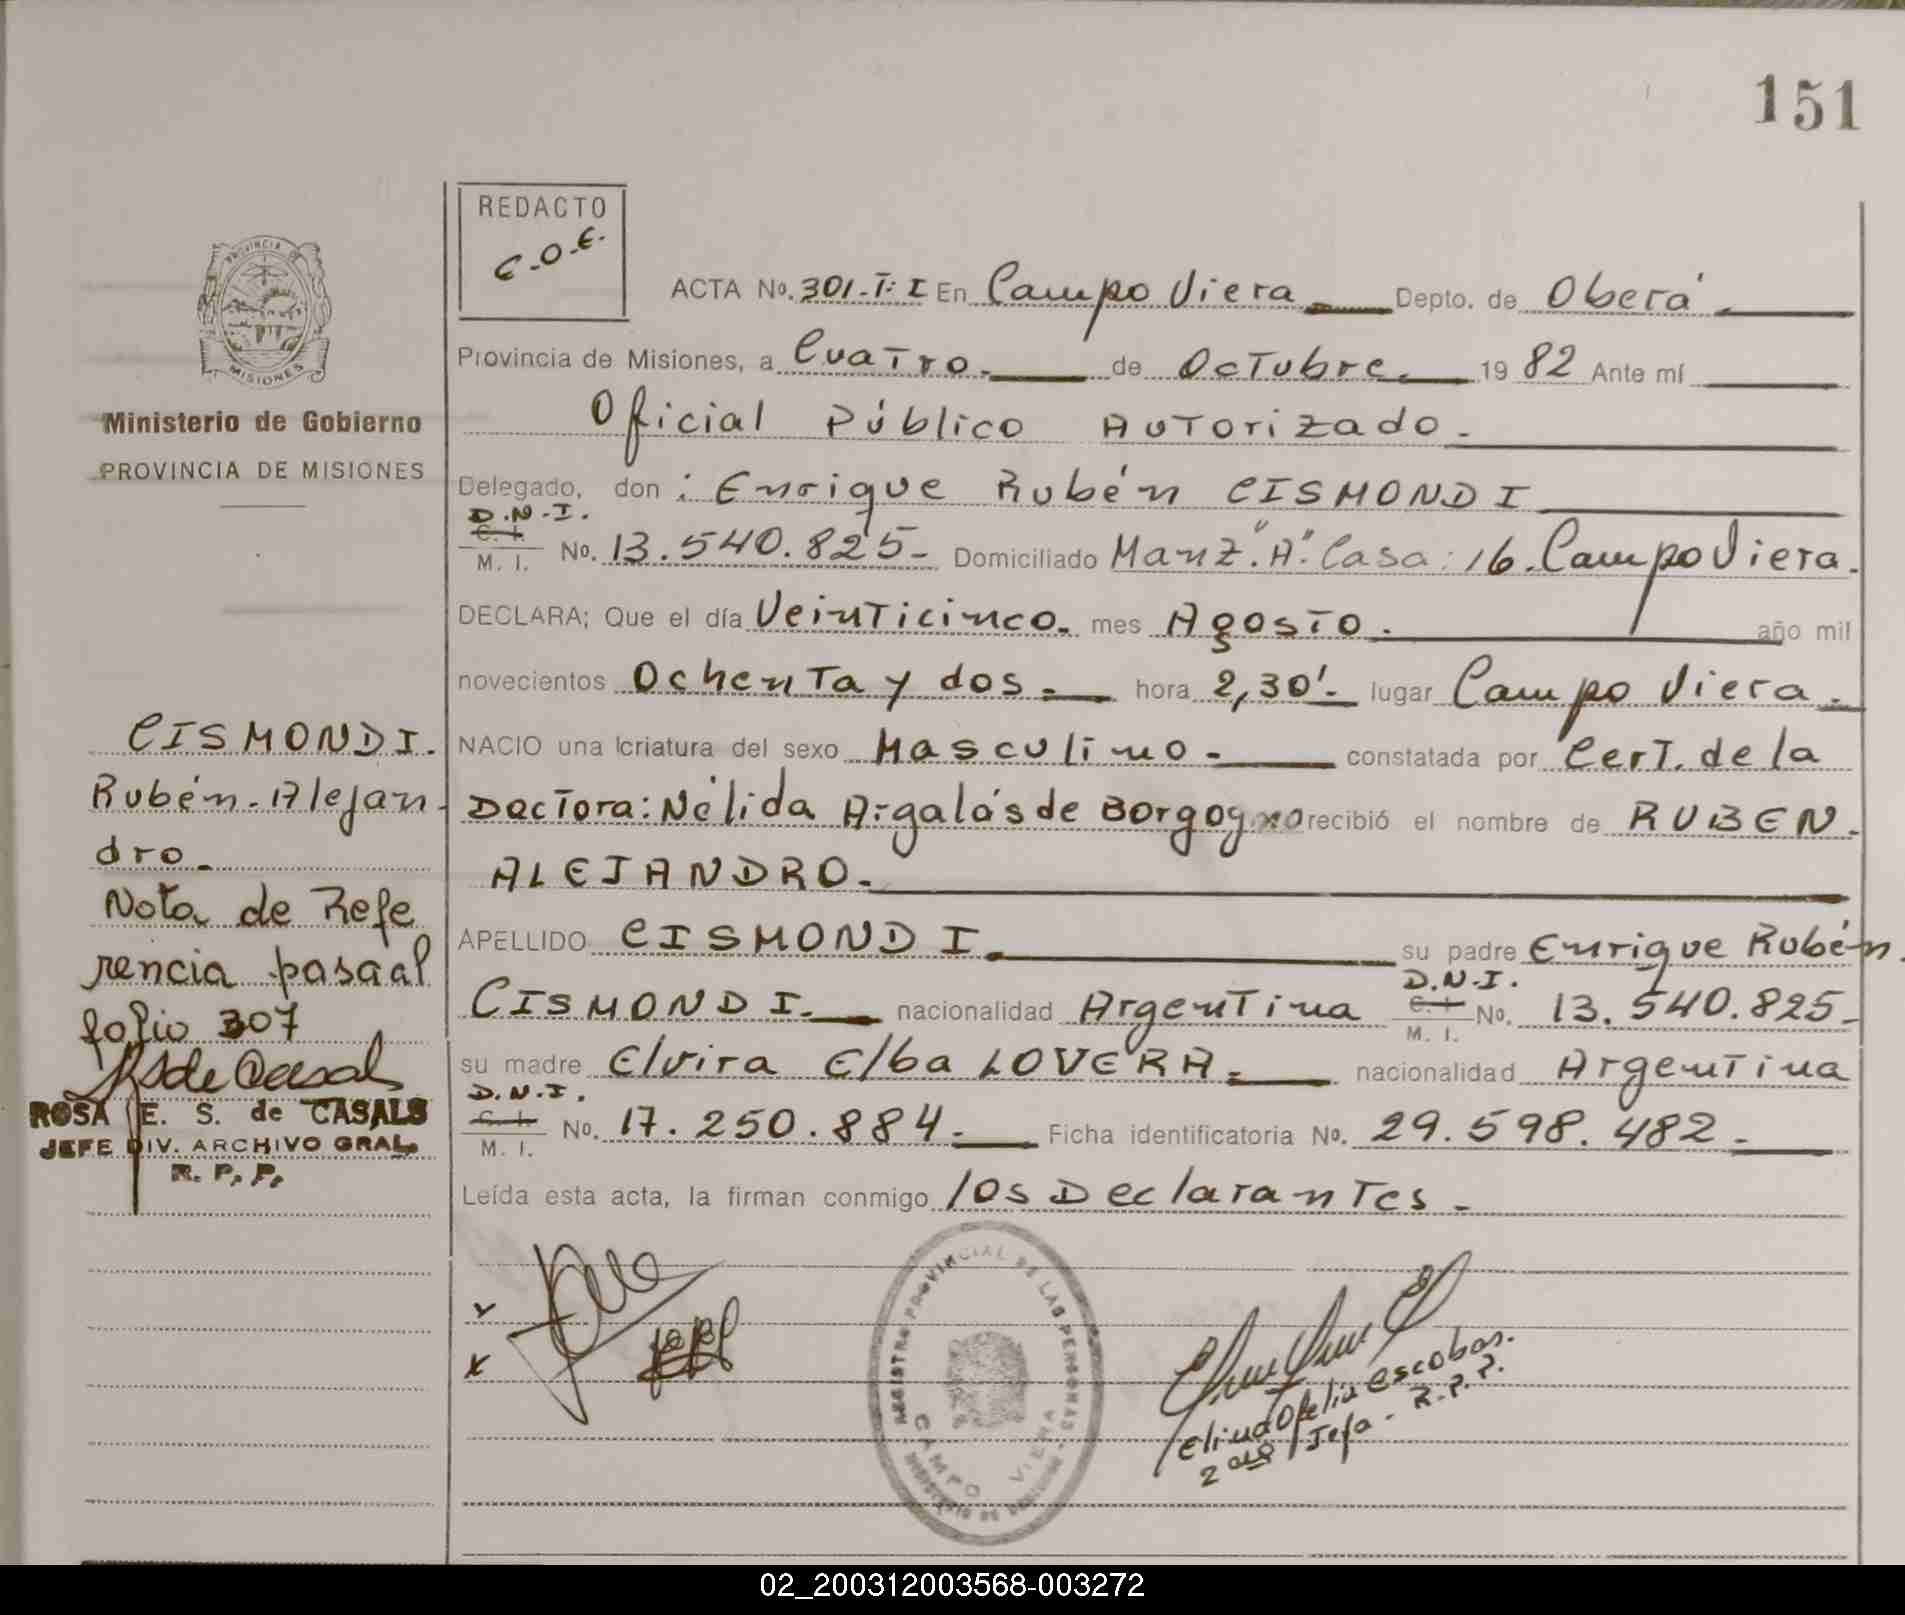 151
PROVINCIA
MISIONES
Ministerio de Gobierno
PROVINCIA DE MISIONES
REDACTO
C.O.E.
ACTA No. 301-T: I En Campo Viera Depto. de Oberá
Provincia de Misiones, a Cuatro. de Octubre. 19 82 Ante mí
Oficial Público Autorizado.
Delegado, don : Enrique Rubén CISMONDI
D.N.I.
C. I.
M. I. No. 13.540.825- Domiciliado Manz. "A". Casa: 16. Campo Viera.
DECLARA; Que el día Veinticinco. mes Agosto. año mil
novecientos Ochenta y dos. hora 2,30'. lugar Campo Viera.
NACIO una criatura del sexo Masculino. constatada por Cert. de la
Doctora: Nélida Argalás de Borgogno recibió el nombre de RUBEN.
ALEJANDRO.
APELLIDO CISMONDI. su padre Enrique Rubén
CISMONDI. nacionalidad Argentina D.N.I. C. I. M. I. No. 13.540.825.
su madre Elvira Elba LOVERA. nacionalidad Argentina
D.N.I.
C. I.
M. I. No. 17.250.884. Ficha identificatoria No. 29.598.482.
Leída esta acta, la firman conmigo los Declarantes.
CISMONDI.
Rubén-Alejan-
dro.
Nota de Refe
rencia pasa al
folio 307
RSde Casals
ROSA E. S. de CASALS
JEFE DIV. ARCHIVO GRAL.
R. P. P.
REGISTRO PROVINCIAL DE LAS PERSONAS
CAMPO VIERA
MINISTERIO DE GOBIERNO
Elina Ofelia Escobar.
Jefa - R.P.P.
02_200312003568-003272